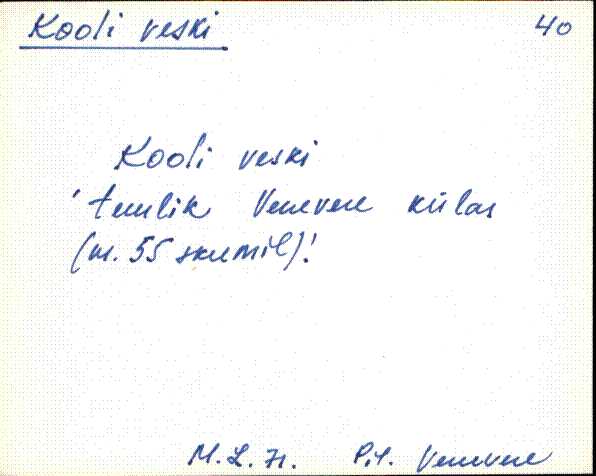 Kooli veski 40
Kooli veski
'tuulik Venevere külas
(nr. 55 skeemil)!
M.L. 71. Pil. Venevere